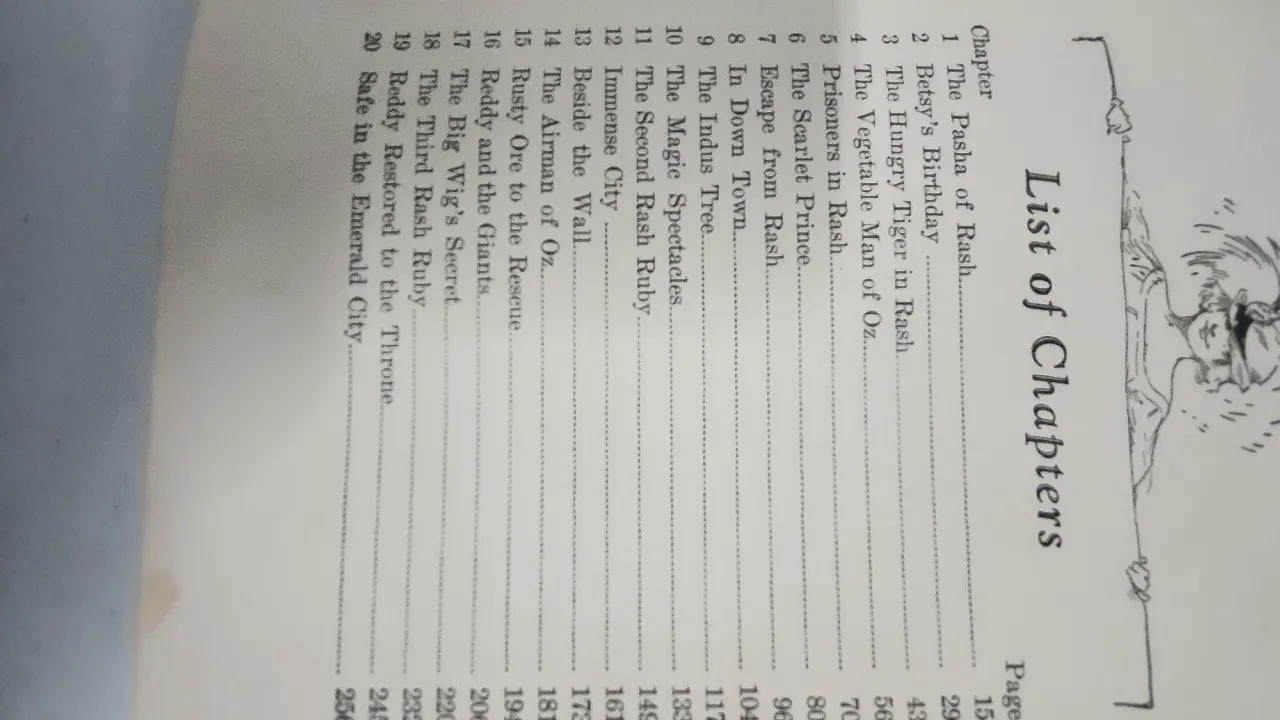 List of Chapters
Chapter Page
1 The Pasha of Rash 15
2 Betsy's Birthday 29
3 The Hungry Tiger in Rash 43
4 The Vegetable Man of Oz 56
5 Prisoners in Rash 70
6 The Scarlet Prince 80
7 Escape from Rash 96
8 In Down Town 104
9 The Indus Tree 117
10 The Magic Spectacles 133
11 The Second Rash Ruby 149
12 Immense City 161
13 Beside the Wall 173
14 The Airman of Oz 181
15 Rusty Ore to the Rescue 194
16 Reddy and the Giants 206
17 The Big Wig's Secret 220
18 The Third Rash Ruby 232
19 Reddy Restored to the Throne
20 Safe in the Emerald City